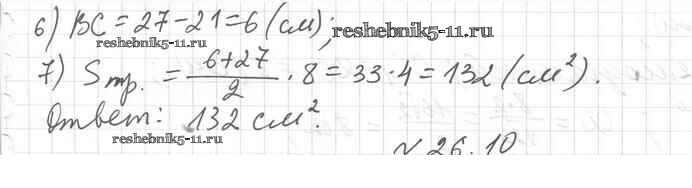 6) BC = 27 - 21 = 6 (см);
reshebnik5-11.ru
reshebnik5-11.ru
7) Sтр. = (6+27)/2 · 8 = 33 · 4 = 132 (см²).
Ответ: 132 см².
reshebnik5-11.ru
№ 26.10